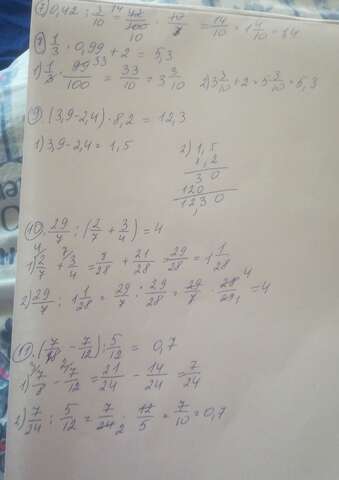 7) 0,42 : 3/10 = 42/100 · 10/3 = 14/10 = 1 4/10 = 1,4
8) 1/3 · 0,99 + 2 = 5,3
1) 1/3 · 99/100 = 33/10 = 3 3/10 2) 3 3/10 + 2 = 5 3/10 = 5,3
9) (3,9-2,4) · 8,2 = 12,3
1) 3,9-2,4 = 1,5 2) 1,5
8,2
30
120
12,30
10) 29/7 : (2/7 + 3/4) = 4
1) 2/7 + 3/4 = 8/28 + 21/28 = 29/28 = 1 1/28
2) 29/7 : 1 1/28 = 29/7 : 29/28 = 29/7 · 28/29 = 4
11) (7/8 - 7/12) : 5/12 = 0,7
1) 7/8 - 7/12 = 21/24 - 14/24 = 7/24
2) 7/24 : 5/12 = 7/24 · 12/5 = 7/10 = 0,7